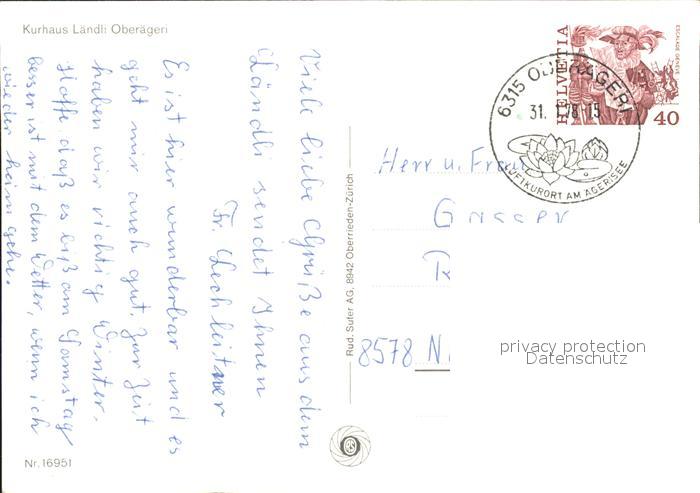 Kurhaus Ländli Oberägeri
Viele liebe Grüße aus dem
Ländli sendet Ihnen
Fr. Lechleitner
Es ist hier wunderbar und es
geht mir auch gut. Zur Zeit
haben wir richtig Winter.
Hoffe daß es biß am Samstag
besser ist mit dem Wetter, wenn ich
wieder heim gehe.
Nr. 16951
Rud. Suter AG, 8942 Oberrieden-Zürich
HELVETIA
ESCALADE GENÈVE
40
6315 OBERÄGERI
31. 1.78 15
LUFTKURORT AM ÄGERISEE
Herr u. Frau
8578 N.
privacy protection
Datenschutz